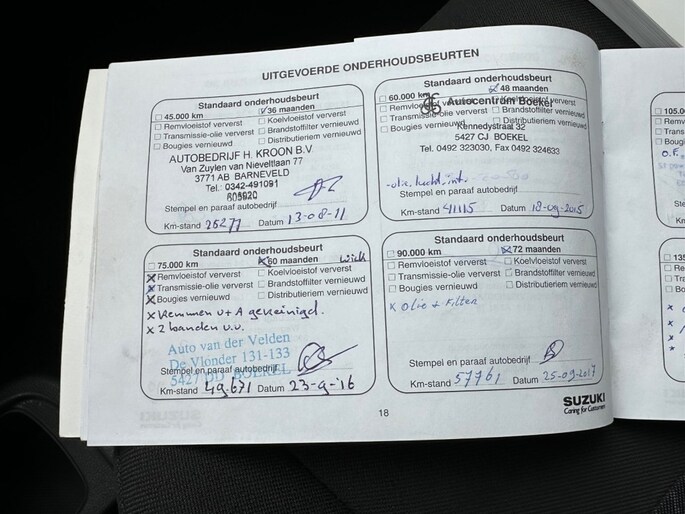 UITGEVOERDE ONDERHOUDSBEURTEN
Standaard onderhoudsbeurt
45.000 km 36 maanden
Remvloeistof ververst Koelvloeistof ververst
Transmissie-olie ververst Brandstoffilter vernieuwd
Bougies vernieuwd Distributieriem vernieuwd
AUTOBEDRIJF H. KROON B.V.
Van Zuylen van Nieveltlaan 77
3771 AB BARNEVELD
Tel.: 0342-491091
605920
Stempel en paraaf autobedrijf
Km-stand 26277 Datum 13-08-11
Standaard onderhoudsbeurt
60.000 km 48 maanden
Remvloeistof ververst Koelvloeistof ververst
Autocentrum Boekel
Transmissie-olie ververst Brandstoffilter vernieuwd
Bougies vernieuwd Distributieriem vernieuwd
Kennedystraat 32
5427 CJ BOEKEL
Tel. 0492 323030, Fax 0492 324633
-olie, lucht, int.
Stempel en paraaf autobedrijf
Km-stand 41115 Datum 18-09-2015
Standaard onderhoudsbeurt
75.000 km 60 maanden
x Remvloeistof ververst Koelvloeistof ververst
x Transmissie-olie ververst Brandstoffilter vernieuwd
x Bougies vernieuwd Distributieriem vernieuwd
x Remmen v+A gereinigd.
x 2 banden v.v.
Auto van der Velden
De Vlonder 131-133
Stempel en paraaf autobedrijf
5427 DD BOEKEL
Km-stand 49.671 Datum 23-9-'16
Standaard onderhoudsbeurt
90.000 km 72 maanden
Remvloeistof ververst Koelvloeistof ververst
Transmissie-olie ververst Brandstoffilter vernieuwd
Bougies vernieuwd Distributieriem vernieuwd
x Olie + Filter
Stempel en paraaf autobedrijf
Km-stand 57761 Datum 25-09-2017
18
SUZUKI
Caring for Customers
105.0
O.F.
135